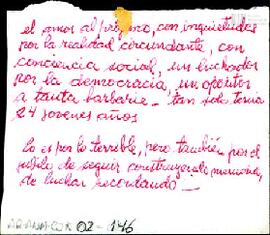 el amor al prójimo, con inquietudes
por la realidad circundante, con
conciencia social, un luchador
por la democracia, un opositor
a tanta barbarie - tan solo tenía
24 jovenes años
Lo es por lo terrible, pero también por el
de seguir construyendo memoria,
de luchar recordando -
AR-ANM-COR 02-146